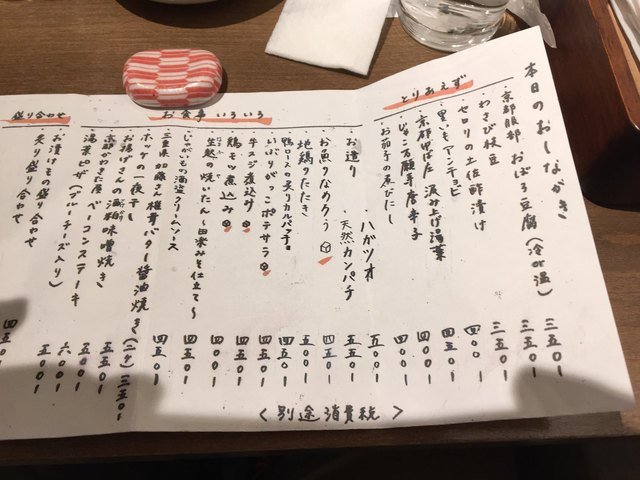 本日のおしながき
とりあえず
京都服部 おぼろ豆腐(冷or温) 三五〇ー
わさび枝豆 三五〇ー
セロリの土佐酢漬け 三五〇ー
黒いもアンチョビ 四〇〇ー
京都 汲み上げ湯葉 四五〇ー
じゃこ万願寺唐辛子 四〇〇ー
お前子の煮びたし 四〇〇ー
お造り
・ハガツオ 五〇〇ー
・天然カンパチ 五五〇ー
お食事いろいろ
お魚りなめろう 四五〇ー
地鶏のたたき 四五〇ー
鴨ロースの炙りカルパッチョ 五五〇ー
いぶりがっこポテサラ 四五〇ー
牛スジ煮込み 四五〇ー
鶏モツ煮込み 四五〇ー
生麩の焼いたん〜田楽みそ仕立て〜 四五〇ー
じゃがいもの酒盗クリームソース 四五〇ー
三重県加藤さん椎茸バター醤油焼き(二ケ) 三五〇ー
ホッケの一夜干し 五五〇ー
お揚げさんの酒粕味噌焼き 五五〇ー
京都がわきた屋ベーコンステーキ 六〇〇ー
湯葉ピザ(ブルーチーズ入り) 五〇〇ー
盛り合わせ
お漬けもの盛り合わせ
炙り盛り合わせ
<別途消費税>